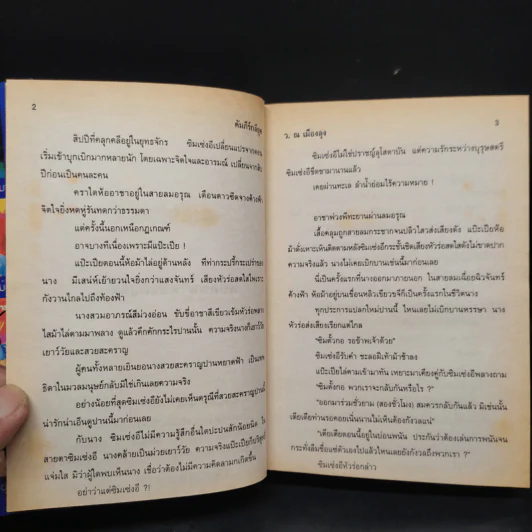 2
คัมภีร์กลีกุล
สิบปีที่คลุกคลีอยู่ในยุทธจักร ซิมเซ่งอีเปลี่ยนแปรจากตอน
เริ่มเข้าบุกเบิกมากหลายนัก โดยเฉพาะจิตใจและอารมณ์ เปลี่ยนจากสิบ
ปีก่อนเป็นคนละคน
คราใดห้ออาชาอยู่ในสายลมอรุณ เดือนดาวซีดจางค้างฟ้า
จิตใจยิ่งหดหู่รันทดกว่าธรรมดา
แต่ครั้งนี้นอกเหนือกฎเกณฑ์
อาจบางทีเนื่องเพราะมีแป๊ะเปีย !
แป๊ะเปียตอนนี้ห้อม้าไล่อยู่ด้านหลัง ทีท่ากระปรี้กระเปร่าของ
นาง มีเสน่ห์เย้ายวนใจยิ่งกว่าแสงจันทร์ เสียงหัวร่อสดใสไพเราะ
กังวานไกลไปถึงท้องฟ้า
นางสวมอาภรณ์สีม่วงอ่อน ขับขี่อาชาสีเขียวเข้มหัวร่อพลาง
ไสม้าไล่ตามมาพลาง ดูแล้วคึกคักกระไรปานนั้น ความจริงนางก็เยาว์วัย
เยาว์วัยและสวยสะคราญ
ผู้คนทั้งหลายเยินยอนางสวยสะคราญปานหยาดฟ้า เป็นเทพ
ธิดาในมวลมนุษย์กลับมิใช่เกินเลยความจริง
อย่างน้อยที่สุดซิมเซ่งอียังไม่เคยเห็นดรุณีที่สวยสะคราญปานนี้
น่ารักน่าเอ็นดูปานนี้มาก่อนเลย
กับนาง ซิมเซ่งอีไม่มีความรู้สึกอื่นใดปะปนสักน้อยนิด ใน
สายตาซิมเซ่งอี นางคล้ายเป็นม่วยเยาว์วัย ความจริงแป๊ะเปียก็บริสุทธิ์
แจ่มใส มิว่าผู้ใดพบเห็นนาง เชื่อว่าต้องไม่มีความคิดลามกเกิดขึ้น
อย่าว่าแต่ซิมเซ่งอี ?!
ว. ณ เมืองลุง
3
ซิมเซ่งอีไม่ใช่ปราชญ์ลุไสดาบัน แต่ความรักระหว่างบุรุษสตรี
ซิมเซ่งอีชืดชามานานแล้ว
เคยผ่านทะเล ลำน้ำย่อมไร้ความหมาย !
อาชาพ่วงพีทะยานผ่านลมอรุณ
เสื้อคลุมถูกสายลมกระชากจนปลิวไสวส่งเสียงดัง แป๊ะเปียห้อ
ม้าตั้งตะเห็นติดตามหลังซิมเซ่งอีกระชั้นชิดเสียงหัวร่อสดใสดังไม่ขาดปาก
ความจริงแล้ว นางไม่เคยเบิกบานเช่นนี้มาก่อนเลย
นี่เป็นครั้งแรกที่นางออกมาภายนอก ในสายลมเฉื่อยฉิวจันทร์
ค้างฟ้า ห้อม้าอยู่บนเชื่อนหลิวเขียวขจีก็เป็นครั้งแรกในชีวิตนาง
ทุกประการแปลกใหม่ปานนี้ ไหนเลยไม่เบิกบานหรรษา นาง
หัวร่อส่งเสียงเรียกแต่ไกล
"ซิมตั้วกอ รอข้าพเจ้าด้วย"
ซิมเซ่งอีรับคำ ชะลอฝีเท้าม้าช้าลง
แป๊ะเปียไล่ตามเข้ามาทัน เหยาะมาเคียงคู่กับซิมเซ่งอีพลางถาม
"ซิมตั้งกอ พวกเราจะกลับกันหรือไร ?"
"ออกมาร่วมชั่วยาม (สองชั่วโมง) สมควรกลับกันแล้ว มิเช่นนั้น
เตียเตียท่านรอคอยเนิ่นนานไม่เห็นต้องกังวลแน่"
"เตียเตียตอนนี้อยู่ในบ่อนพนัน ประกันว่าต้องเล่นการพนันจน
กระทั่งลืมชื่อแซ่ตัวเองไปแล้วไหนเลยยังกังวลถึงพวกเรา ?"
ซิมเซ่งอีหัวร่อกล่าว